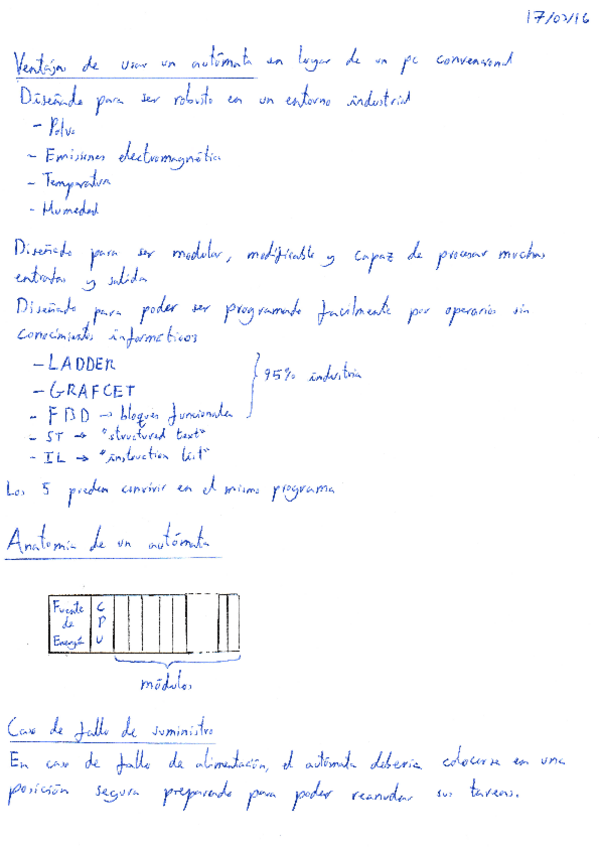 17/02/16
Ventajas de usar un autómata en lugar de un pc convencional
Diseñado para ser robusto en un entorno industrial
- Polvo
- Emisiones electromagnética
- Temperatura
- Humedad
Diseñado para ser modular, modificable y capaz de procesar muchas
entradas y salida
Diseñado para poder ser programado facilmente por operarios sin
conocimientos informáticos
- LADDER
- GRAFCET
95% industria
- FBD → bloques funcionales
- ST → "structured text"
- IL → "instruction list"
Los 5 pueden convivir en el mismo programa
Anatomía de un autómata
Fuente de Energía
CPU
módulos
Caso de fallo de suministro
En caso de fallo de alimentación, el autómata debería colocarse en una
posición segura preparado para poder reanudar sus tareas.